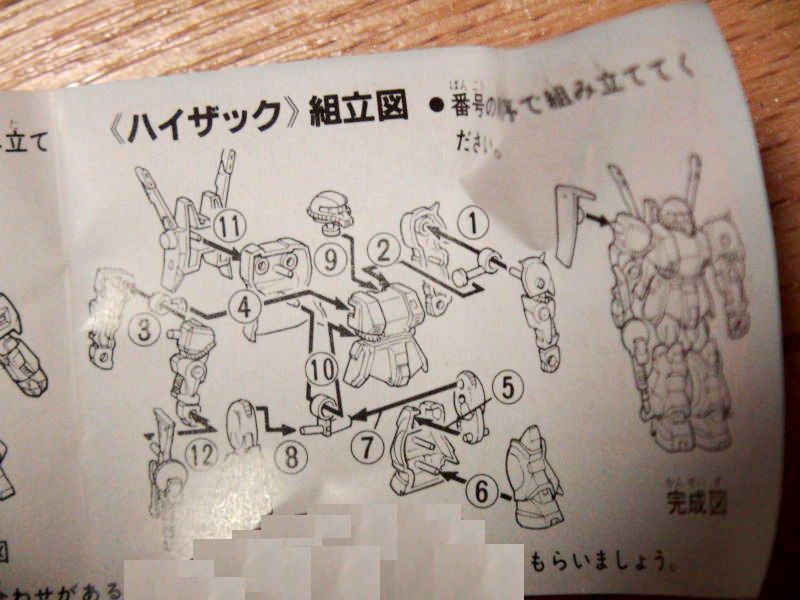 立て
《ハイザック》組立図
●番号の順で組み立ててく
ばんごう
ださい。
⑪
①
②
⑨
④
③
⑩
⑤
⑫
⑧
⑦
⑥
かんせいず
完成図
図
もらいましょう。
わせがある